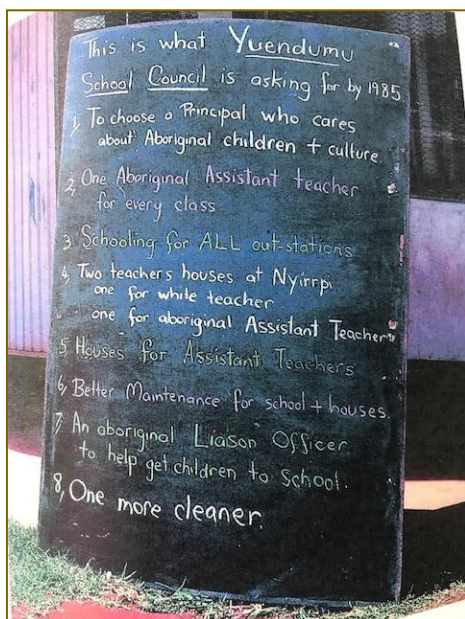 This is what Yuendumu
School Council is asking for by 1985
1, To choose a Principal who cares
about Aboriginal children + culture.
2, One Aboriginal Assistant teacher
for every class
3. Schooling for ALL out-stations
4, Two teachers houses at Nyirrpi
one for white teacher
one for aboriginal Assistant Teacher
5, Houses for Assistant Teachers
6, Better Maintenance for school + houses.
7, An aboriginal Liaison Officer
to help get children to School.
8, One more cleaner.